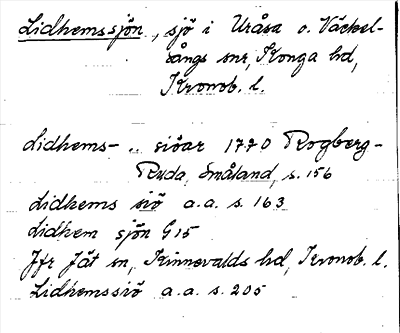 Lidhemssjön, sjö i Uråsa o. Väckel-
sångs snr, Konga hd,
Kronob. l.
Lidhems- .. siöar 1770 Rogberg-
Ruda, Småland, s. 156
Lidhems siö a.a. s. 163
Lidhem sjön G15
Jfr Jät sn, Kinnevalds hd, Kronob. l.
Lidhemssiö a.a. s. 205